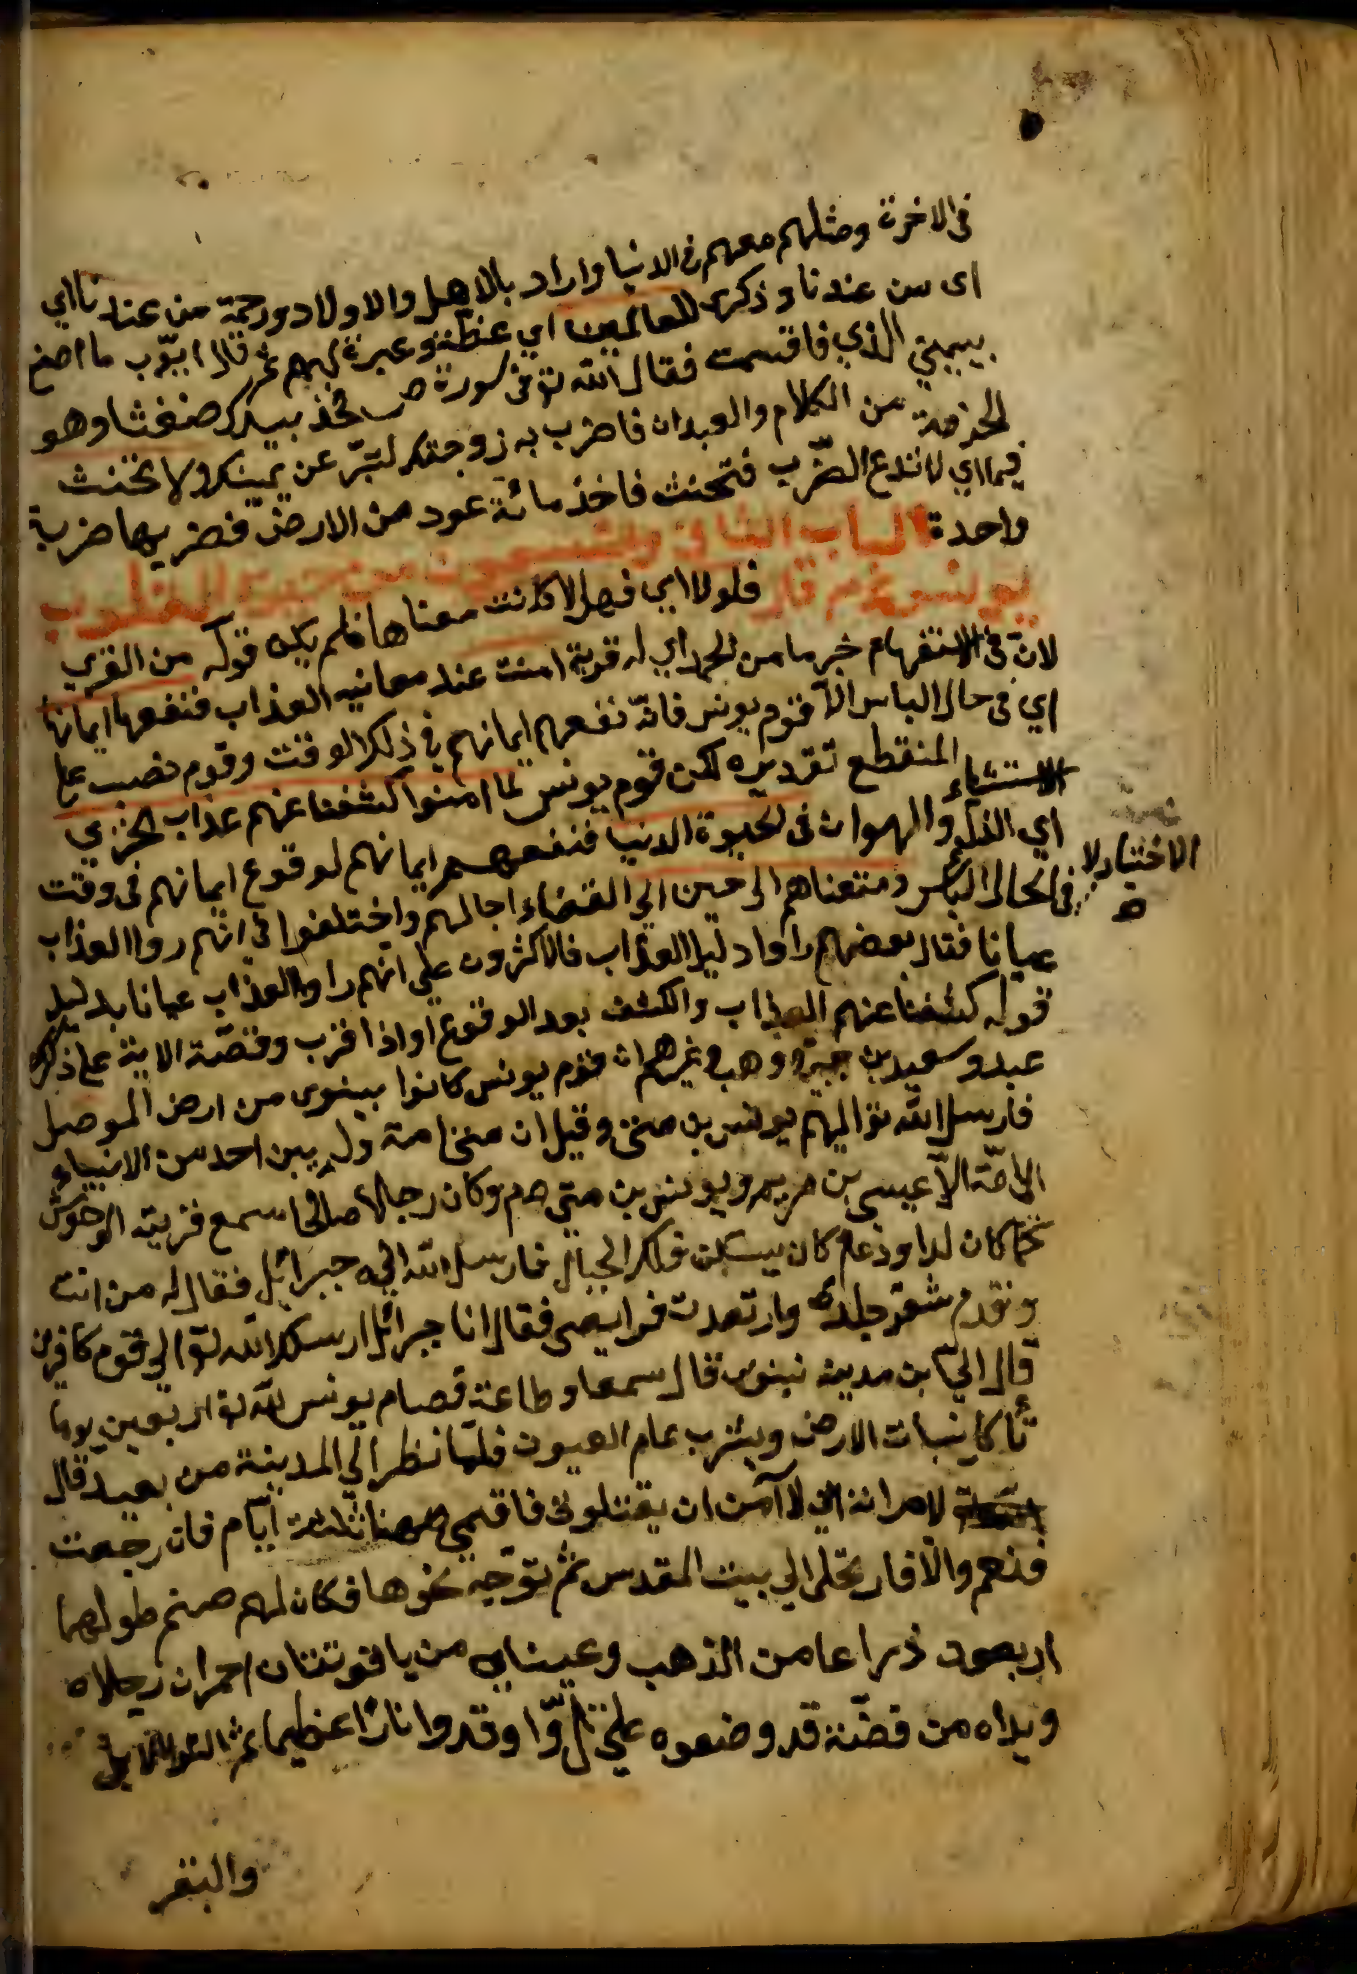 فى الاخرة ومثلهم معهم فى الدنيا واراد بالاهل والاولاد ورحمة من عندنا اي
اى من عندنا وذكرى للعالمين اي عظة وعبرة لهم ثم قال ايوب ما اصنع
بيميني الذي فاقسمت فقال الله تع فى سورة ص وخذ بيدك ضغثا وهو
الحزمة من الكلام والعبدان فاضرب به زوجتك لتبر عن يمينك ولا تحنث
فيما اي لا تدع الضرب فتحنث فاخذ مائة عود من الارض فضربها ضربة
واحدة الباب الثانى والتسعون من حيوة القلوب
يونس عم قال فلولا اي فهلا كانت معناها فلم يكن قوله من القرى
لان فى الاستفهام خبرما من الجحد اي له قرية امنت عند معاينه العذاب فنفعها ايمانها
اي فى حال الباس الا قوم يونس فانه نفعهم ايمانهم فى ذلك الوقت وقوم نصب على
الاستثناء المنقطع تقديره لكن قوم يونس لما امنوا كشفنا عنهم عذاب الخزي
اي الذل والهوان فى الحيوة الدنيا فنفعهم ايمانهم لوقوع ايمانهم فى وقت
الاختيار لا
فى الحال الباس ومتعناهم الى حين الي انقضاء اجالهم واختلفوا فى انهم رواا العذاب
عيانا فقال بعضهم راوا دليل العذاب فالاكثرون على انهم راوا العذاب عيانا بدليل
قوله كشفنا عنهم العذاب والكشف بعد الوقوع او اذا قرب وقصة الاية على ذكره
عبد وسعيد بن جبير ووهب وغيرهم ان قوم يونس كانوا بينوى من ارض الموصل
فارسل الله تع اليهم يونس بن متى وقيل ان متى امه ولم يبن احد من الانبياء
الى امه الا عيسى بن مريم ويونس بن متى عم وكان رجلا صالحا سمع قريته الوحوش
كما كان لداود عم كان يسكن فلكر الجبال فارسل الله اليه جبرائيل فقال له من انت
وتقدم شعر جلده وارتعدت فرايصى فقال انا جبرائل ارسلك الله تع الى قوم كافرين
قال الى ابن مدينه نينوى قال سمعا وطاعة فصام يونس لله تع اربعين يوما
تأكل نبات الارض ويشرب ماء العيون فلما نظر الي المدينة من بعيد قال
لامراته اني لا آمن ان يقتلونى فاقيمي ههنا ثلثة ايام فان رجعت
فنعم والا فارتحلى الي بيت المقدس ثم توجه نحوها فكان لهم صنم طولهما
اربعون ذراعا من الذهب وعيناه من ياقوتتان احمران رجلاه
ويداه من فضة قد وضعوه على تل واوقدوا نارا عظيما ثم
والبقر